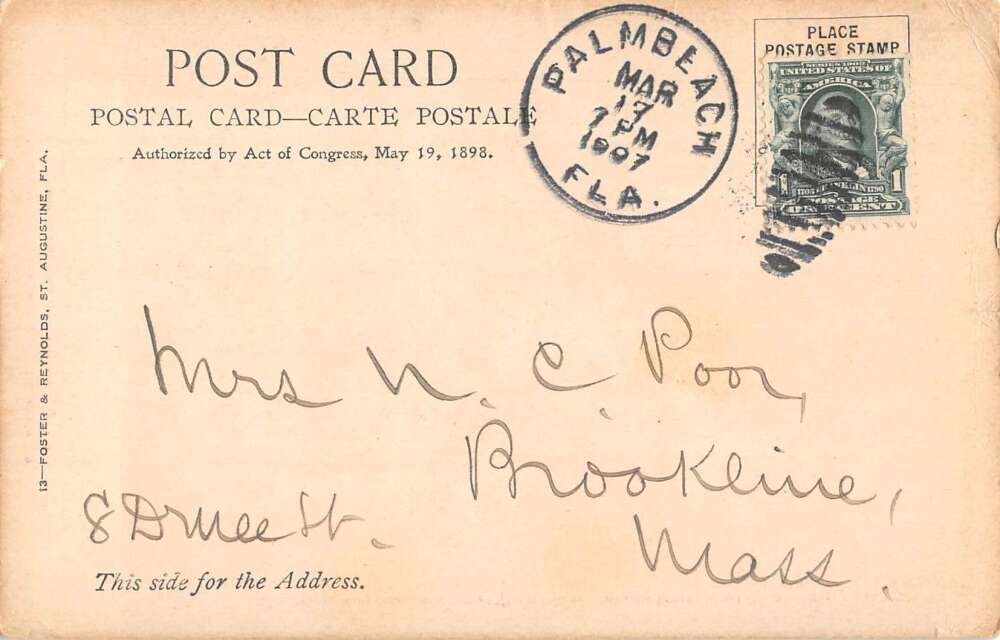 POST CARD
POSTAL CARD—CARTE POSTALE
Authorized by Act of Congress, May 19, 1898.
PALMBEACH
MAR
17
7 PM
1907
FLA.
PLACE
POSTAGE STAMP
SERIES 1902
UNITED STATES OF
AMERICA
1 1
1706 FRANKLIN 1790
POSTAGE
ONE CENT
13—FOSTER & REYNOLDS, ST. AUGUSTINE, FLA.
Mrs N. C. Poor,
Brookline,
8 St.
Mass.
This side for the Address.